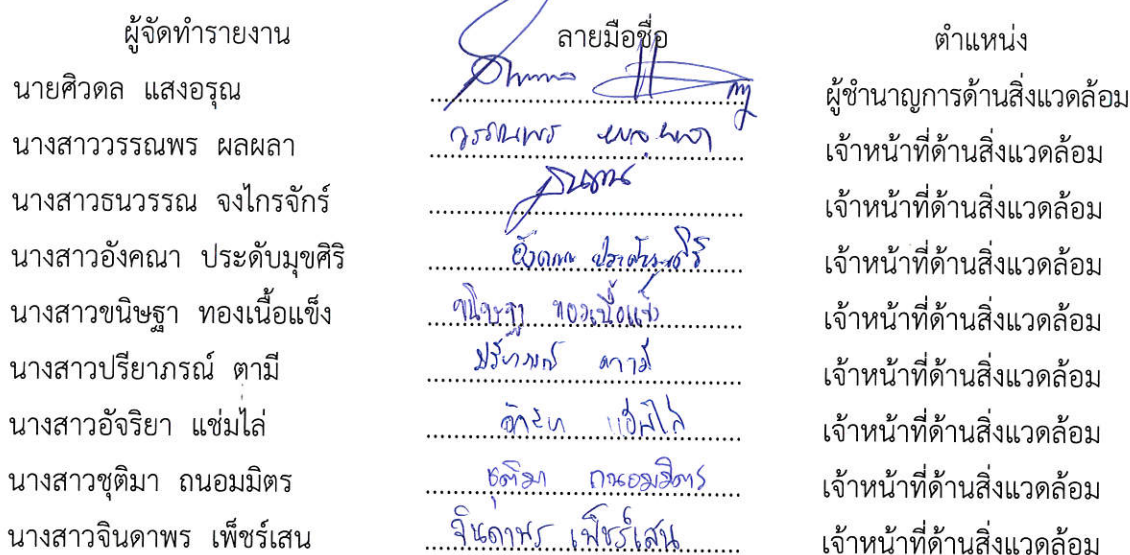 ผู้จัดทำรายงาน ลายมือชื่อ ตำแหน่ง
นายศิวดล แสงอรุณ ผู้ชำนาญการด้านสิ่งแวดล้อม
นางสาววรรณพร ผลผลา วรรณพร เจ้าหน้าที่ด้านสิ่งแวดล้อม
นางสาวธนวรรณ จงไกรจักร์ เจ้าหน้าที่ด้านสิ่งแวดล้อม
นางสาวอังคณา ประดับมุขศิริ อังคณา ประดับมุขศิริ เจ้าหน้าที่ด้านสิ่งแวดล้อม
นางสาวขนิษฐา ทองเนื้อแข็ง ขนิษฐา ทองเนื้อแข็ง เจ้าหน้าที่ด้านสิ่งแวดล้อม
นางสาวปรียาภรณ์ ตามี ปรียาภรณ์ ตามี เจ้าหน้าที่ด้านสิ่งแวดล้อม
นางสาวอัจริยา แช่มไล่ อัจริยา แช่มไล่ เจ้าหน้าที่ด้านสิ่งแวดล้อม
นางสาวชุติมา ถนอมมิตร ชุติมา ถนอมมิตร เจ้าหน้าที่ด้านสิ่งแวดล้อม
นางสาวจินดาพร เพ็ชร์เสน จินดาพร เพ็ชร์เสน เจ้าหน้าที่ด้านสิ่งแวดล้อม